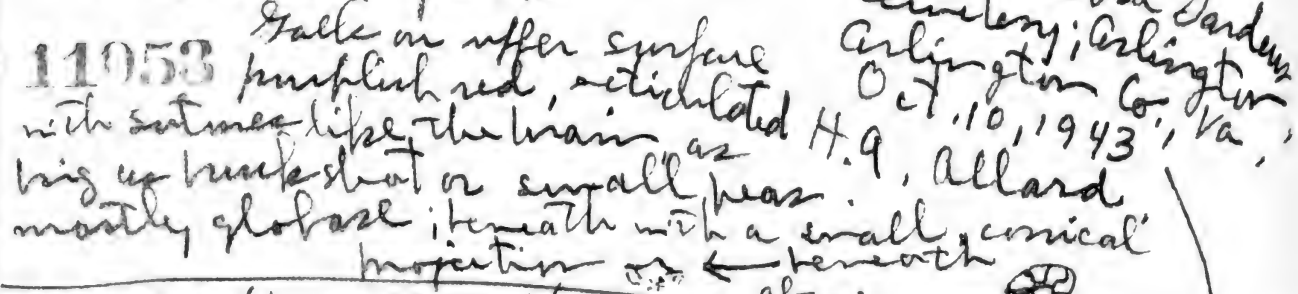 Galls on upper surface
11053 purplish red, reticulated
with sutures like the brain, as
big as buckshot or small peas.
mostly globose; beneath with a small, conical
projection ← beneath
Gardens
Cemetery; Arlington
Arlington Co., Va.,
Oct. 10, 1943
H.A. Allard